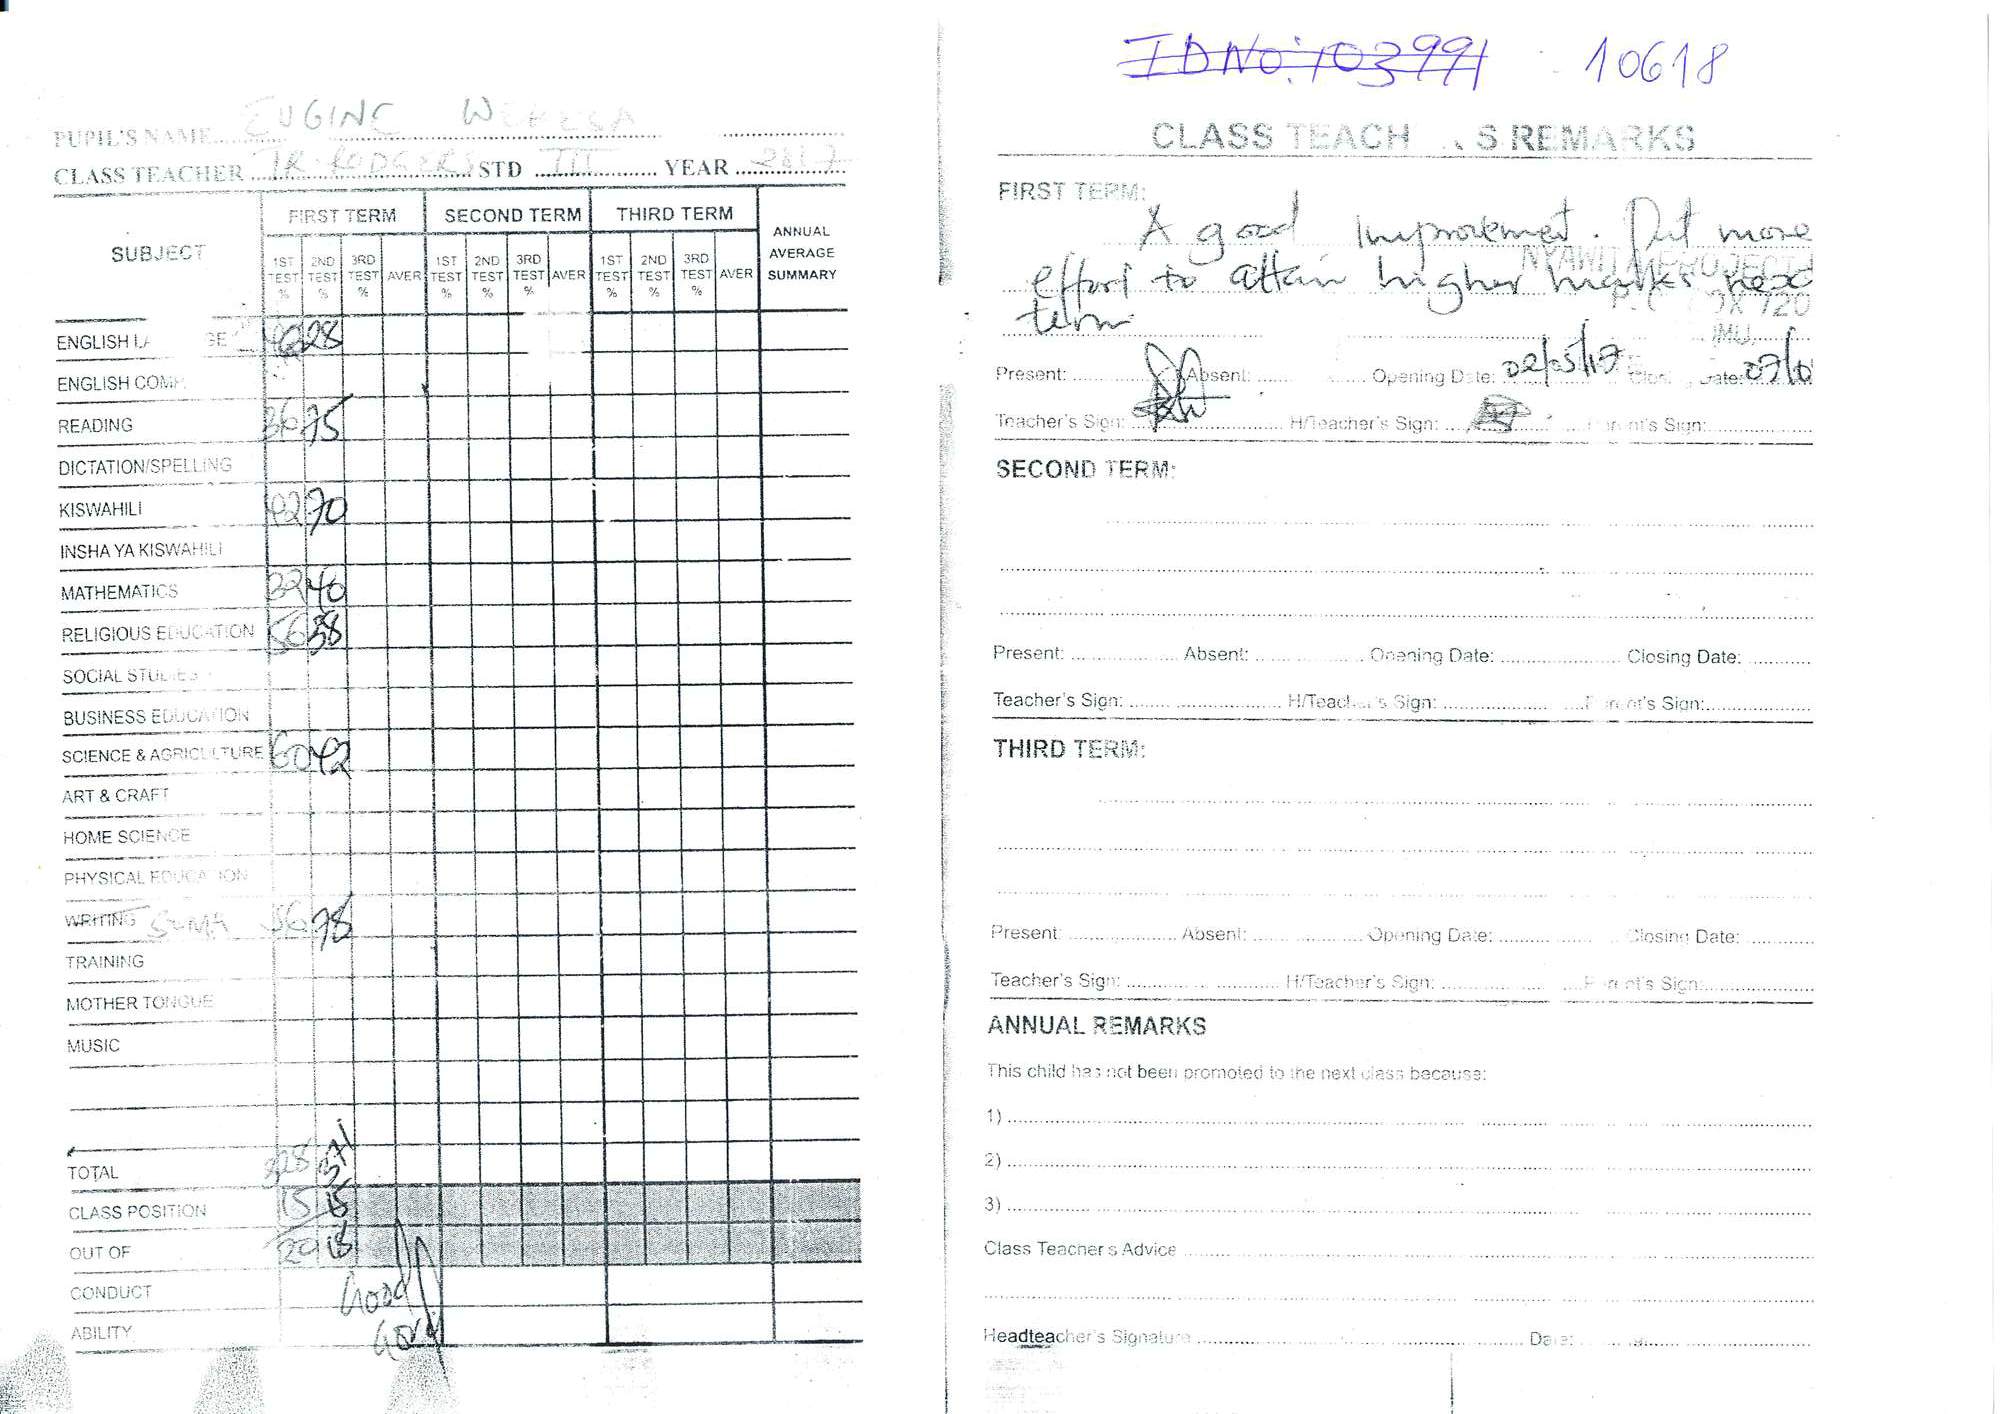 IDNo: 103991 10618
PUPIL'S NAME EUGINE WEKESA
CLASS TEACHER TR. RODGERS STD III YEAR 2017
SUBJECT FIRST TERM SECOND TERM THIRD TERM ANNUAL AVERAGE SUMMARY
1ST TEST % 2ND TEST % 3RD TEST % AVER 1ST TEST % 2ND TEST % 3RD TEST % AVER 1ST TEST % 2ND TEST % 3RD TEST % AVER
ENGLISH 28
ENGLISH COMP.
READING 36 75
DICTATION/SPELLING
KISWAHILI 42 70
INSHA YA KISWAHILI
MATHEMATICS 32 40
RELIGIOUS EDUCATION 56 38
SOCIAL STUDIES
BUSINESS EDUCATION
SCIENCE & AGRICULTURE 60 42
ART & CRAFT
HOME SCIENCE
PHYSICAL EDUCATION
WRITING SOMA 56 78
TRAINING
MOTHER TONGUE
MUSIC
TOTAL 328 371
CLASS POSITION 15 15
OUT OF 20 18
CONDUCT Good
ABILITY Good
CLASS TEACH S REMARKS
FIRST TERM:
A good improvement. Put more
effort to attain higher marks next
term
NYAWITA PROJECT
BOX 720
Present: Absent: Opening Date: 02/05/17 Closing Date: 07/0
Teacher's Sign: H/Teacher's Sign: Parent's Sign:
SECOND TERM:
Present: Absent: Opening Date: Closing Date:
Teacher's Sign: H/Teacher's Sign: Parent's Sign:
THIRD TERM:
Present: Absent: Opening Date: Closing Date:
Teacher's Sign: H/Teacher's Sign: Parent's Sign:
ANNUAL REMARKS
This child has not been promoted to the next class because:
1)
2)
3)
Class Teacher's Advice
Headteacher's Signature Date: